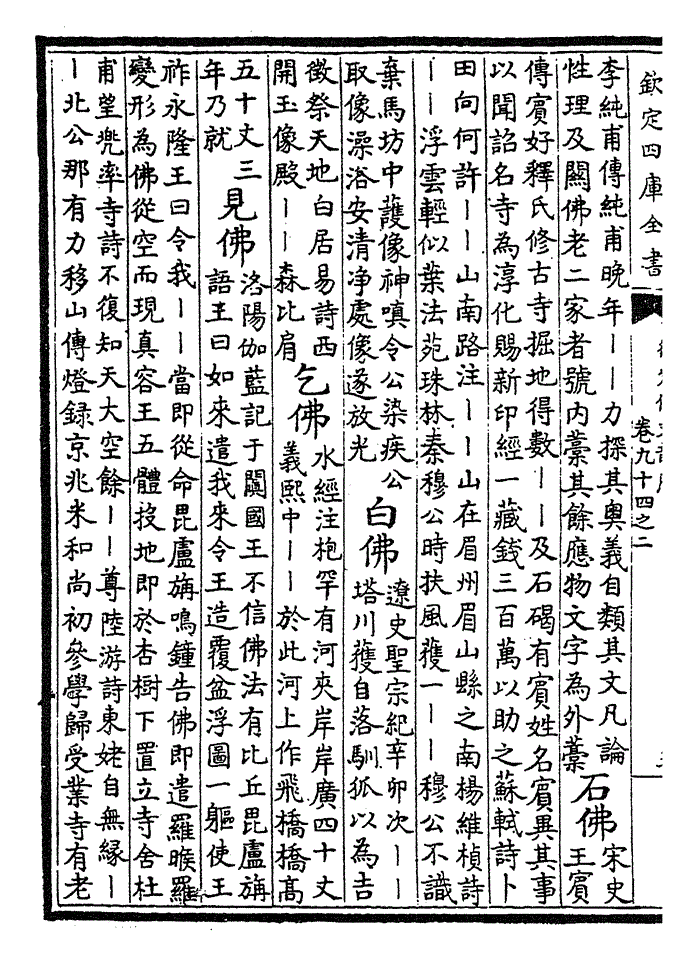 欽定四庫全書
卷九十四之二
李純甫傳純甫晚年丨丨力探其奥義自類其文凡論
性理及闗佛老二家者號内藁其餘應物文字為外藁
石佛
宋史
王賓
傳賓好釋氏修古寺掘地得數丨丨及石碣有賓姓名賓異其事
以聞詔名寺為淳化賜新印經一藏錢三百萬以助之蘇軾詩卜
田向何許丨丨山南路注丨丨山在眉州眉山縣之南楊維楨詩
丨丨浮雲輕似葉法苑珠林秦穆公時扶風獲一丨丨穆公不識
棄馬坊中䕶像神嗔令公染疾公
取像澡浴安清净處像遂放光
白佛
遼史聖宗紀辛卯次丨丨
塔川獲自落馴狐以為吉
徵祭天地白居易詩西
開玉像殿丨丨森比肩
乞佛
水經注枹罕有河夾岸岸廣四十丈
義熙中丨丨於此河上作飛橋橋髙
五十丈三
年乃就
見佛
洛陽伽藍記于闐國王不信佛法有比丘毘盧旃
語王曰如來遣我來令王造覆盆浮圖一軀使王
祚永隆王曰令我丨丨當即從命毘盧旃鳴鐘告佛即遣羅睺羅
變形為佛從空而現真容王五體投地即於杏樹下置立寺舍杜
甫望兠率寺詩不復知天大空餘丨丨尊陸游詩東姥自無縁丨
丨北公那有力移山傳燈録京兆米和尚初參學歸受業寺有老